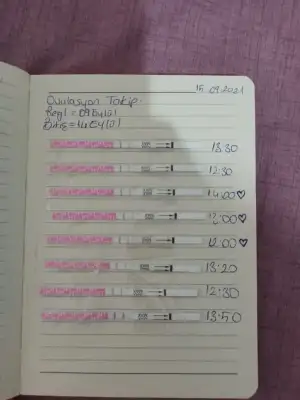 15.09.2021
Ovulasyon Takip
Regl = 09 Eylül
Bitiş = 14 Eylül
13:30
12:30
14:00♡
12:00♡
12:00♡
13:20
12:30
13:50